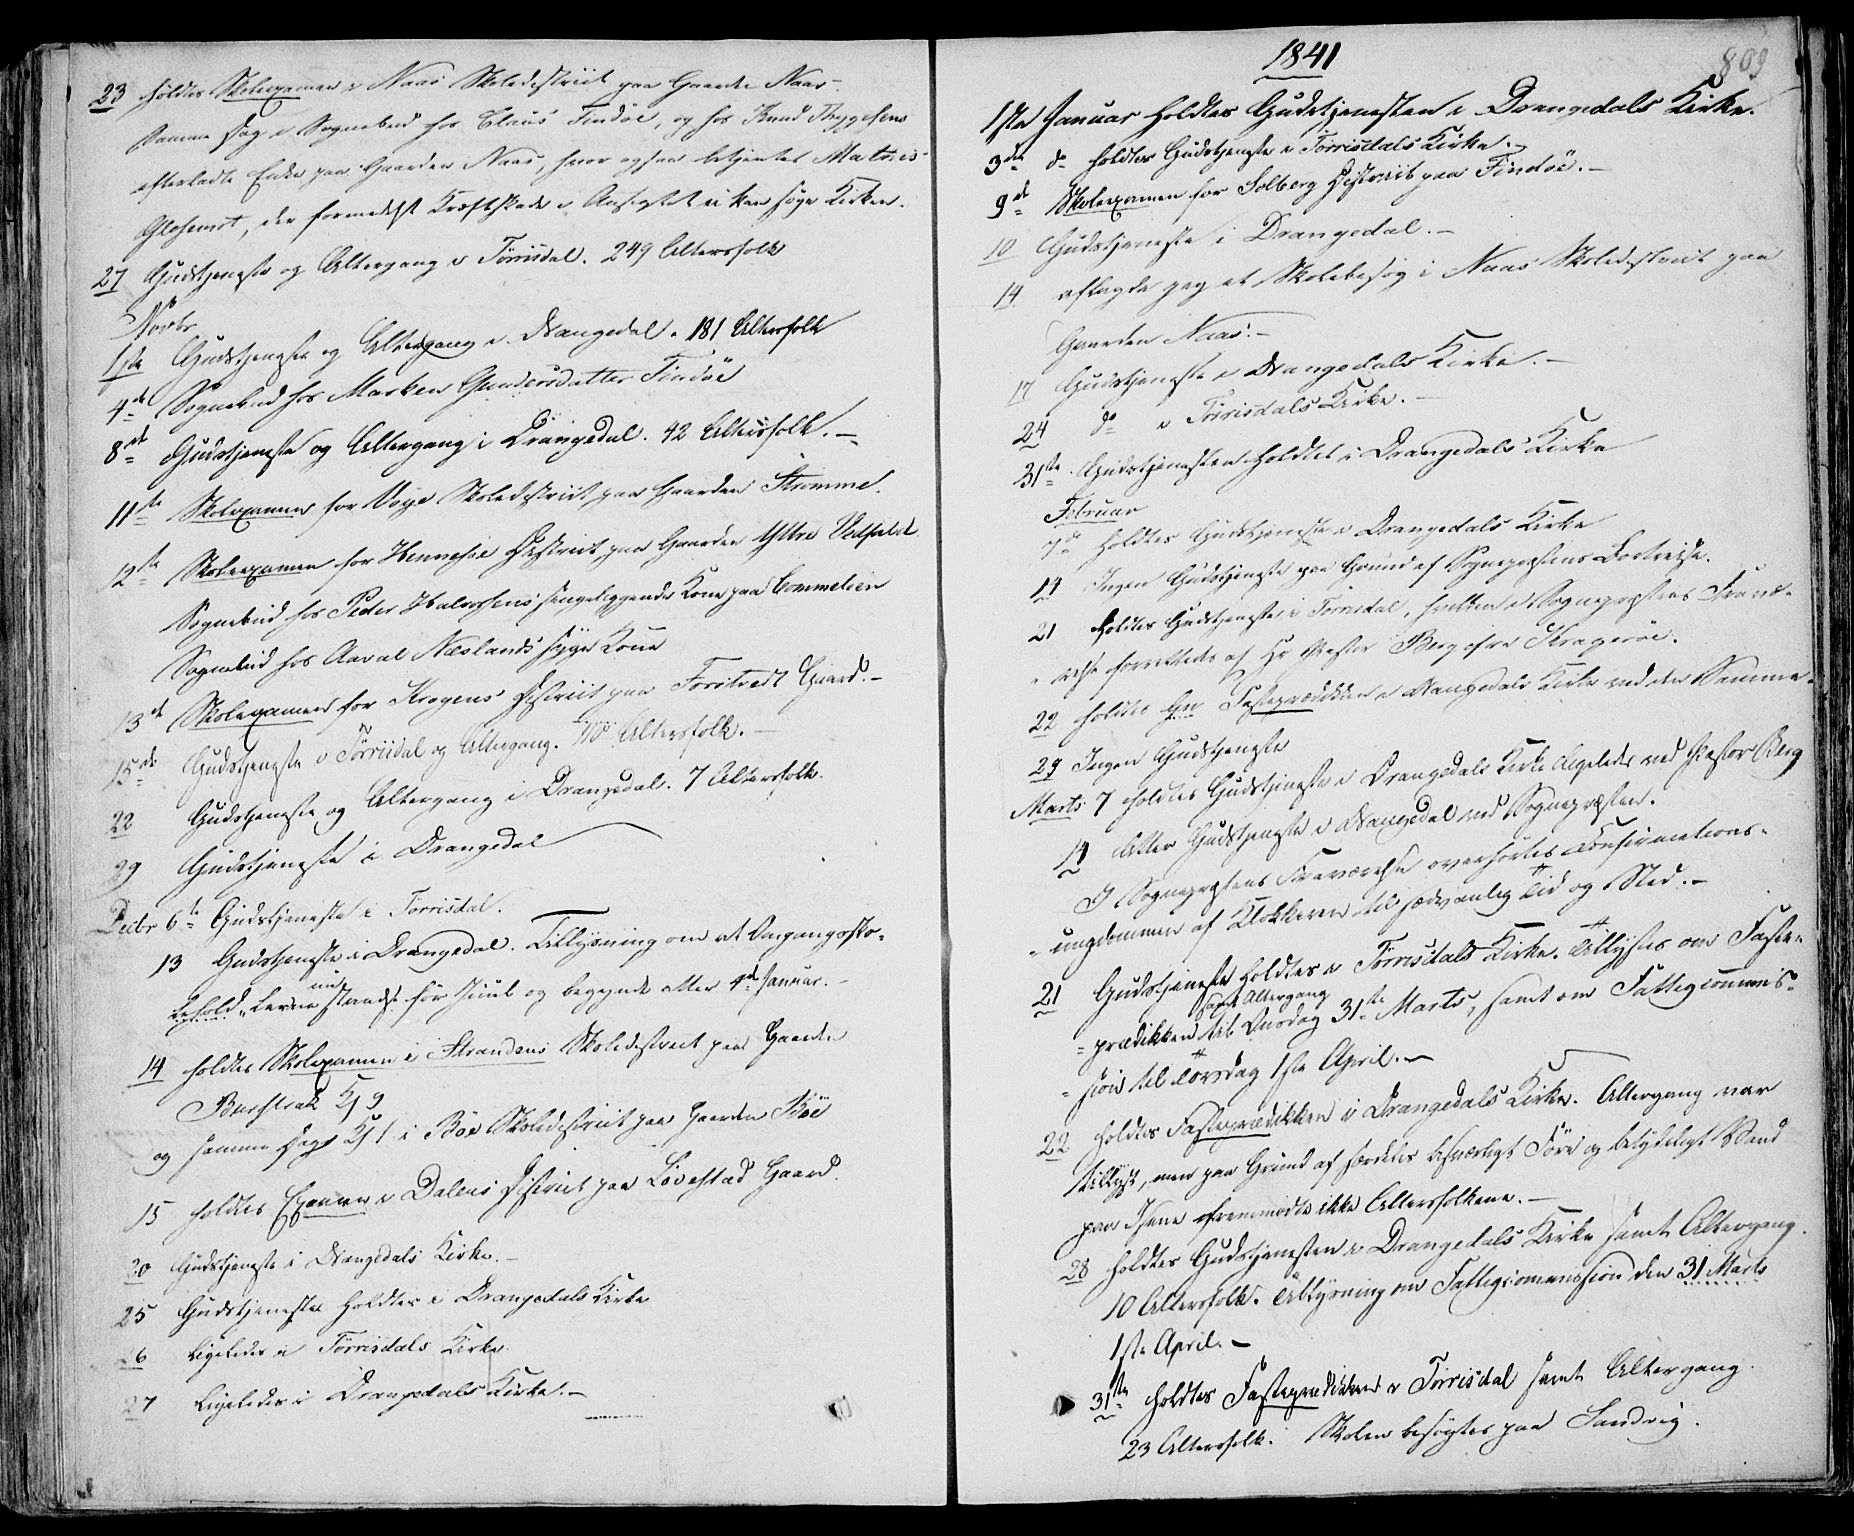 23 holdtes Skoleexamen i Naas Skoledistrict paa Gaarden Naas.
samme Dag i Sognebud hos Claus Findöe, og hos Knud Thygesens
efterladte Enke paa Gaarden Naas, hvor ogsaa betjentes Mathis
Glosemot, der formedelst Kræftskade i Ansigtet ei kan søge Kirken.
27 Gudstjeneste og Altergang i Törrisdal. 249 Altersfolk
Novbr
1ste Gudstjeneste og Altergang i Drangedal. 181 Altersfolk
4de Sognebud hos Marken Gundersdatter Findöe
8de Gudstjeneste og Altergang i Drangedal. 42 Altersfolk.
11te Skolexamen for Voje Skoledistrict paa Gaarden Strømme.
12te Skoleexamen for Henneseie District paa Gaarden Yttre Vedfaldt
Sognebud hos Peder Halvorsens sengeliggende Kone paa Gommelien
Sognebud hos Aaval Næslands syge Kone
13de Skolexamen for Krogens District paa Torstvedt Gaard.
15de Gudstjeneste i Törrisdal og Altergang. Altersfolk.
22 Gudstjeneste og Altergang i Drangedal. 7 Altersfolk.
29 Gudstjeneste i Drangedal
Decbr 6te Gudstjeneste i Torrisdal.
13 Gudstjeneste i Drangedal. Tillysning om at Omgangssko-
lehold-Lærerne maa standse før Juul og begynde atter 4de Januar.
14 holdtes Skolexamen i Strandens Skoledistrict paa Gaarden
Buestrak Kl 9
og samme Dags Kl 1 i Böe Skoledistrict paa Gaarden Böe
15 holdtes Examen i Dalens District paa Lövestad Gaard.
20 Gudstjeneste i Drangedals Kirke.
25 Gudstjeneste holdtes i Drangedals Kirke
26 Ligeledes i Törrisdals Kirke.
27 Ligeledes i Drangedals Kirke.
1841
809
1ste Januar holdtes Gudstjenesten i Drangedals Kirke.
3die do holdtes Gudstjeneste i Törrisdals Kirke.
9de Skoleexamen for Solberg District paa Findöe.
10 Gudstjeneste i Drangedal.
14 aflagde jeg et Skolebesøg i Naas Skoledistrict paa
Gaarden Naas.
17 Gudstjeneste i Drangedals Kirke.
24 do i Törrisdals Kirke.
31te Gudstjenesten holdtes i Drangedals Kirke
Februar
7de holdtes Gudstjeneste i Drangedals Kirke
14 Ingen Gudstjeneste paa Grund af Sognepræstens Bortreise.
21 holdtes Gudstjeneste i Törrisdal, hvilken i Sognepræstens Fravæ-
relse forrettedes af Hr Pastor Berg fra Kragerøe.
22 holdtes Fasteprædikken i Drangedals Kirke ved den Samme.
29 Ingen Gudstjeneste
Marts 7 holdtes Gudstjeneste i Drangedals Kirke ligeledes ved Pastor Berg
14 Atter Gudstjeneste i Drangedal ved Sognepræsten.
I Sognepræstens Fraværelse overhörtes Confirmations-
ungdommen af Klokkeren til sædvanlig Tid og Sted.
21 Gudstjeneste holdtes i Törrisdals Kirke. Tillystes om Faste-
samt Altergang
prædikken til Onsdag 31te Marts, samt om Fattigcommis-
sion til Torsdag 1ste April.
22 holdtes Fasteprædikken i Drangedals Kirke. Altergang var
tillyst, men paa Grund af særdeles besværligt Före og betydeligt Vand
paa Isene fremmødte ikke Altersfolkene.
28 holdtes Gudstjenesten i Drangedals Kirke samt Altergang.
10 Altersfolk. Tillysning om Fattigcommission den 31 Marts
1ste April.
31te holdtes Fasteprædikken i Törrisdal samt Altergang.
23 Altersfolk. Skolen besøgtes paa Sandvig.